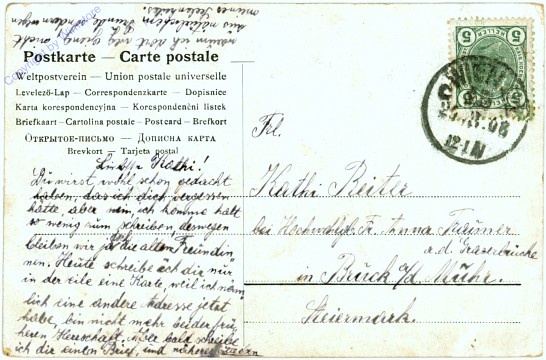 Postkarte — Carte postale
Weltpostverein — Union postale universelle
Levelező-Lap — Correspondenzkarte — Dopisnice
Karta korespondencyjna — Korespondenčni listek
Briefkaart — Cartolina postale — Postcard — Brefkort
Открытое-письмо — Дописна карта
Brevkort — Tarjeta postal
Kathi!
Du wirst wohl schon gedacht
haben, das ich dich vergessen
hätte, aber nein, ich komme halt
so wenig zum schreiben deswegen
bleiben wir ja doch die alten Freundin
nen. Heute schreibe ich dir nur
in der eile eine Karte, weil ich näm
lich eine andere Adresse jetzt
habe, bin nicht mehr bei der frü
heren Herrschaft. Aber bald schreibe
ich dir einen Brief, und näheres
5 5
WIEN
12
Frl.
Kathi Reiter
bei Hochwohlg. Fr. Anna
a. d. Grazerbrücke
in Bruck a/d Muhr.
Steiermark.